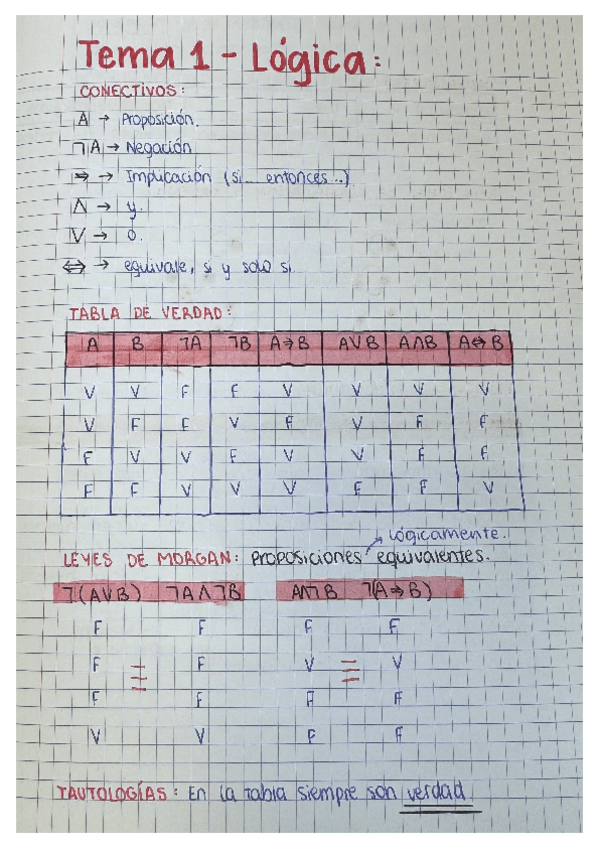 Tema 1 - Lógica:
CONECTIVOS:
A → Proposición.
¬A → Negación
⇒ → Implicación (si... entonces...)
Λ → y.
V → o.
⇔ → equivale, si y solo si
TABLA DE VERDAD:
A B ¬A ¬B A⇒B AVB AΛB A⇔B
V V F F V V V V
V F F V F V F F
F V V F V V F F
F F V V V F F V
Lógicamente.
LEYES DE MORGAN: Proposiciones equivalentes.
¬(AVB) ¬AΛ¬B AΛ¬B ¬(A⇒B)
F F F F
F ≡ F V ≡ V
F F F F
V V F F
TAUTOLOGÍAS: En la tabla siempre son verdad